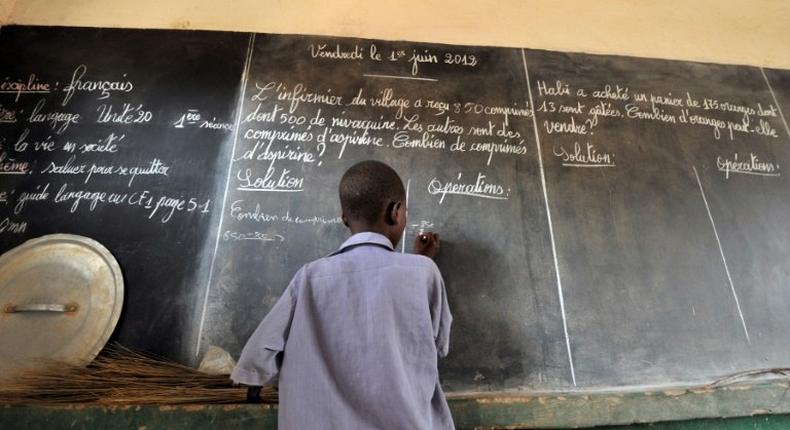 iscipline: français
langage Unité 20
1ère séance
la vie en société
saluer pour se quitter
guide langage au CE1 page 51
Vendredi le 1er juin 2012
L'infirmier du village a reçu 850 comprimés
dont 500 de nivaquine. Les autres sont des
comprimés d'aspirine. Combien de comprimés
d'aspirine?
Solution
Opérations:
Combien de comprimé
850-500
Habi a acheté un panier de 175 oranges dont
13 sont gâtées. Combien d'oranges peut-elle
vendre?
Solution:
Opérations: